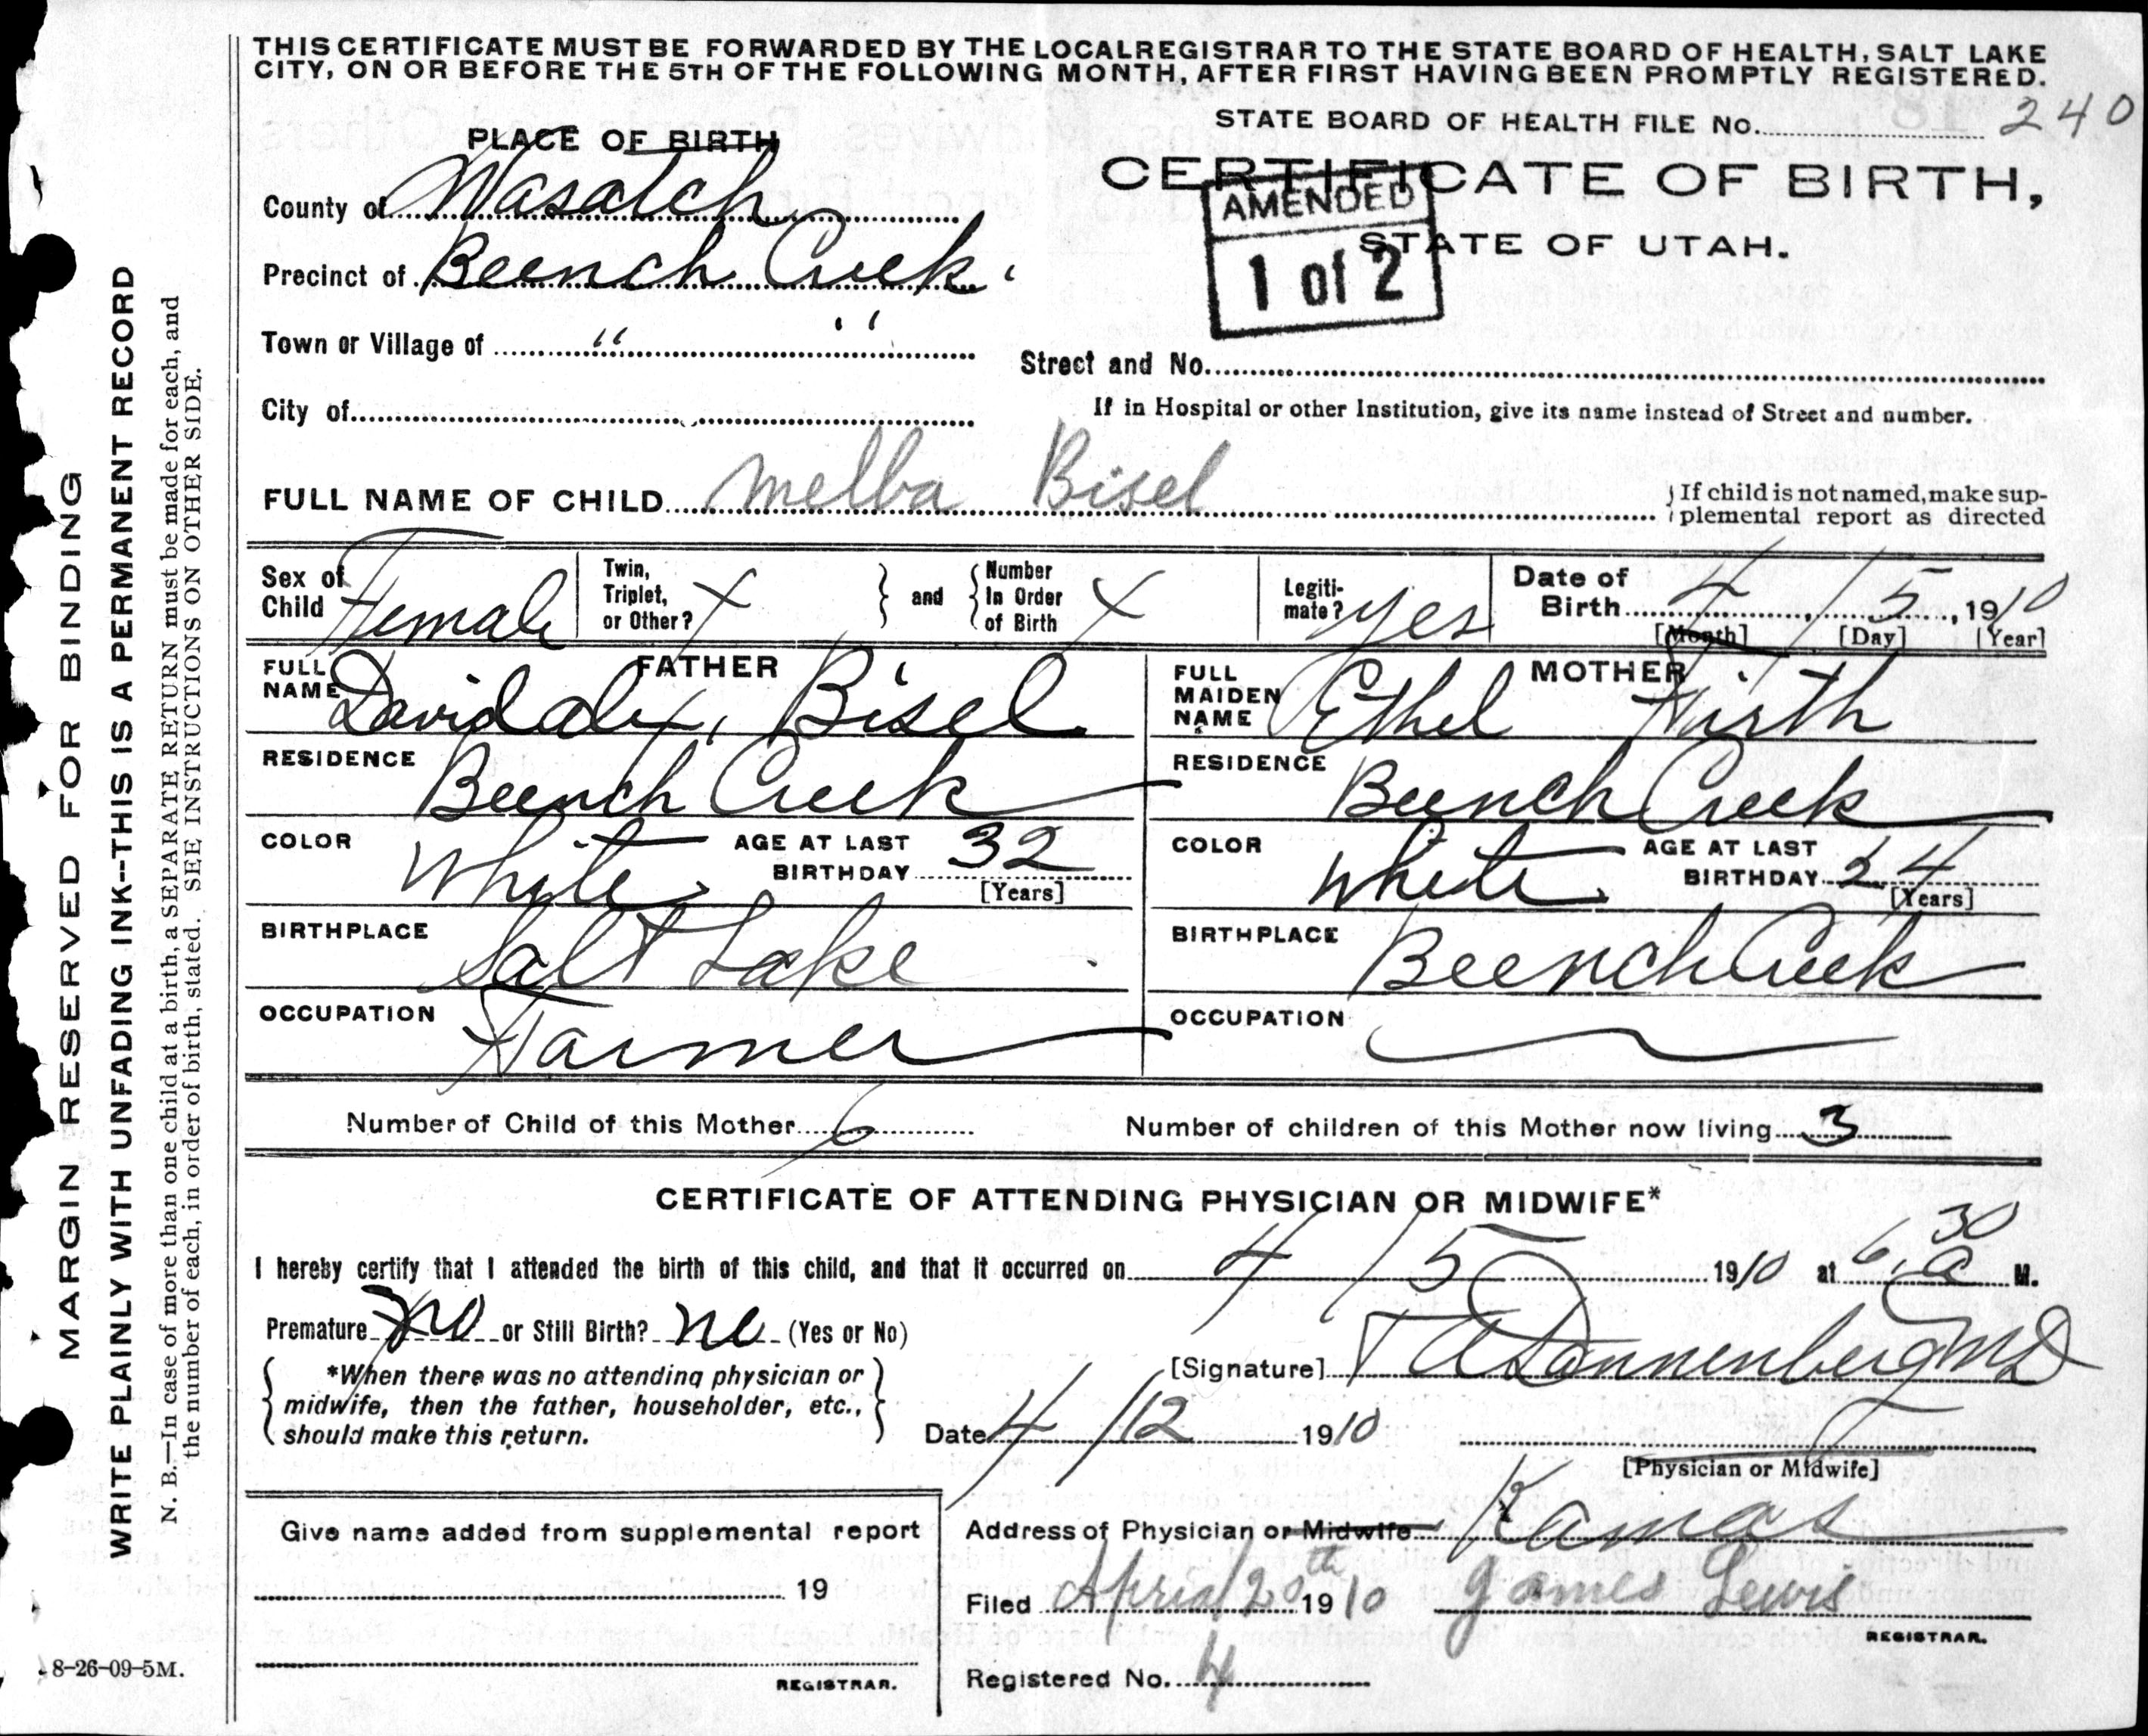 THIS CERTIFICATE MUST BE FORWARDED BY THE LOCAL REGISTRAR TO THE STATE BOARD OF HEALTH, SALT LAKE
CITY, ON OR BEFORE THE 5TH OF THE FOLLOWING MONTH, AFTER FIRST HAVING BEEN PROMPTLY REGISTERED.
STATE BOARD OF HEALTH FILE No. 240
PLACE OF BIRTH
CERTIFICATE OF BIRTH,
STATE OF UTAH.
AMENDED
1 of 2
County of Wasatch
Precinct of Beench Creek
Town or Village of " "
Street and No.
City of
If in Hospital or other Institution, give its name instead of Street and number.
FULL NAME OF CHILD Melba Bisel
If child is not named, make sup-
plemental report as directed
Sex of Child Female
Twin, Triplet, or Other? X and Number In Order of Birth X
Legiti-mate? yes
Date of Birth 4 / 5, 1910
[Month] [Day] [Year]
FATHER
FULL NAME David Alex, Bisel
RESIDENCE Beench Creek
COLOR White AGE AT LAST BIRTHDAY 32
[Years]
BIRTHPLACE Salt Lake
OCCUPATION Farmer
MOTHER
FULL MAIDEN NAME Ethel Firth
RESIDENCE Beench Creek
COLOR White AGE AT LAST BIRTHDAY 24
[Years]
BIRTHPLACE Beench Creek
OCCUPATION
Number of Child of this Mother 6 Number of children of this Mother now living 3
CERTIFICATE OF ATTENDING PHYSICIAN OR MIDWIFE*
I hereby certify that I attended the birth of this child, and that it occurred on 4 / 5 1910 at 6,30 a M.
Premature no or Still Birth? no (Yes or No)
*When there was no attending physician or
midwife, then the father, householder, etc.,
should make this return.
[Signature] T A Dannenberg MD
Date 4/12 1910
[Physician or Midwife]
Address of Physician or Midwife Kamas
Give name added from supplemental report
19
REGISTRAR.
Filed April 20th 1910 James Lewis
REGISTRAR.
Registered No. 4
MARGIN RESERVED FOR BINDING
WRITE PLAINLY WITH UNFADING INK--THIS IS A PERMANENT RECORD
N. B.—In case of more than one child at a birth, a SEPARATE RETURN must be made for each, and
the number of each, in order of birth, stated. SEE INSTRUCTIONS ON OTHER SIDE.
8-26-09-5M.